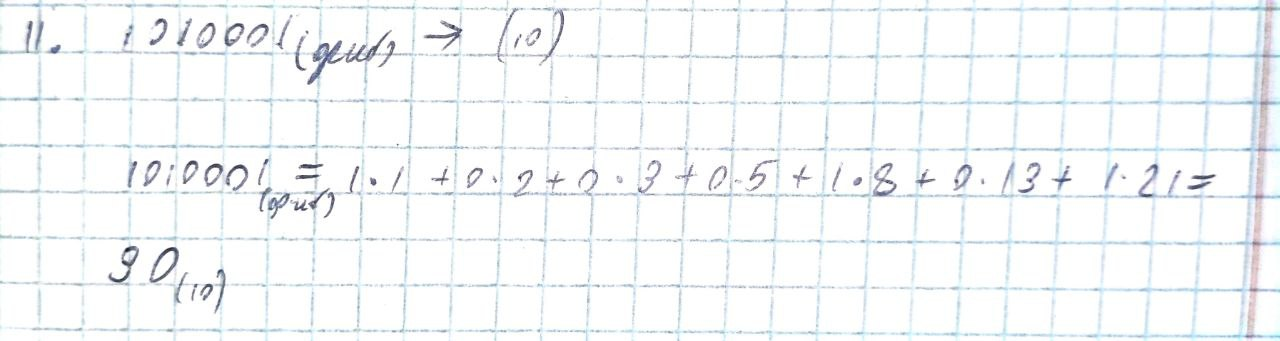 11. 1010001(фиб) → (10)
1010001(фиб) = 1·1 + 0·2 + 0·3 + 0·5 + 1·8 + 0·13 + 1·21 =
30(10)